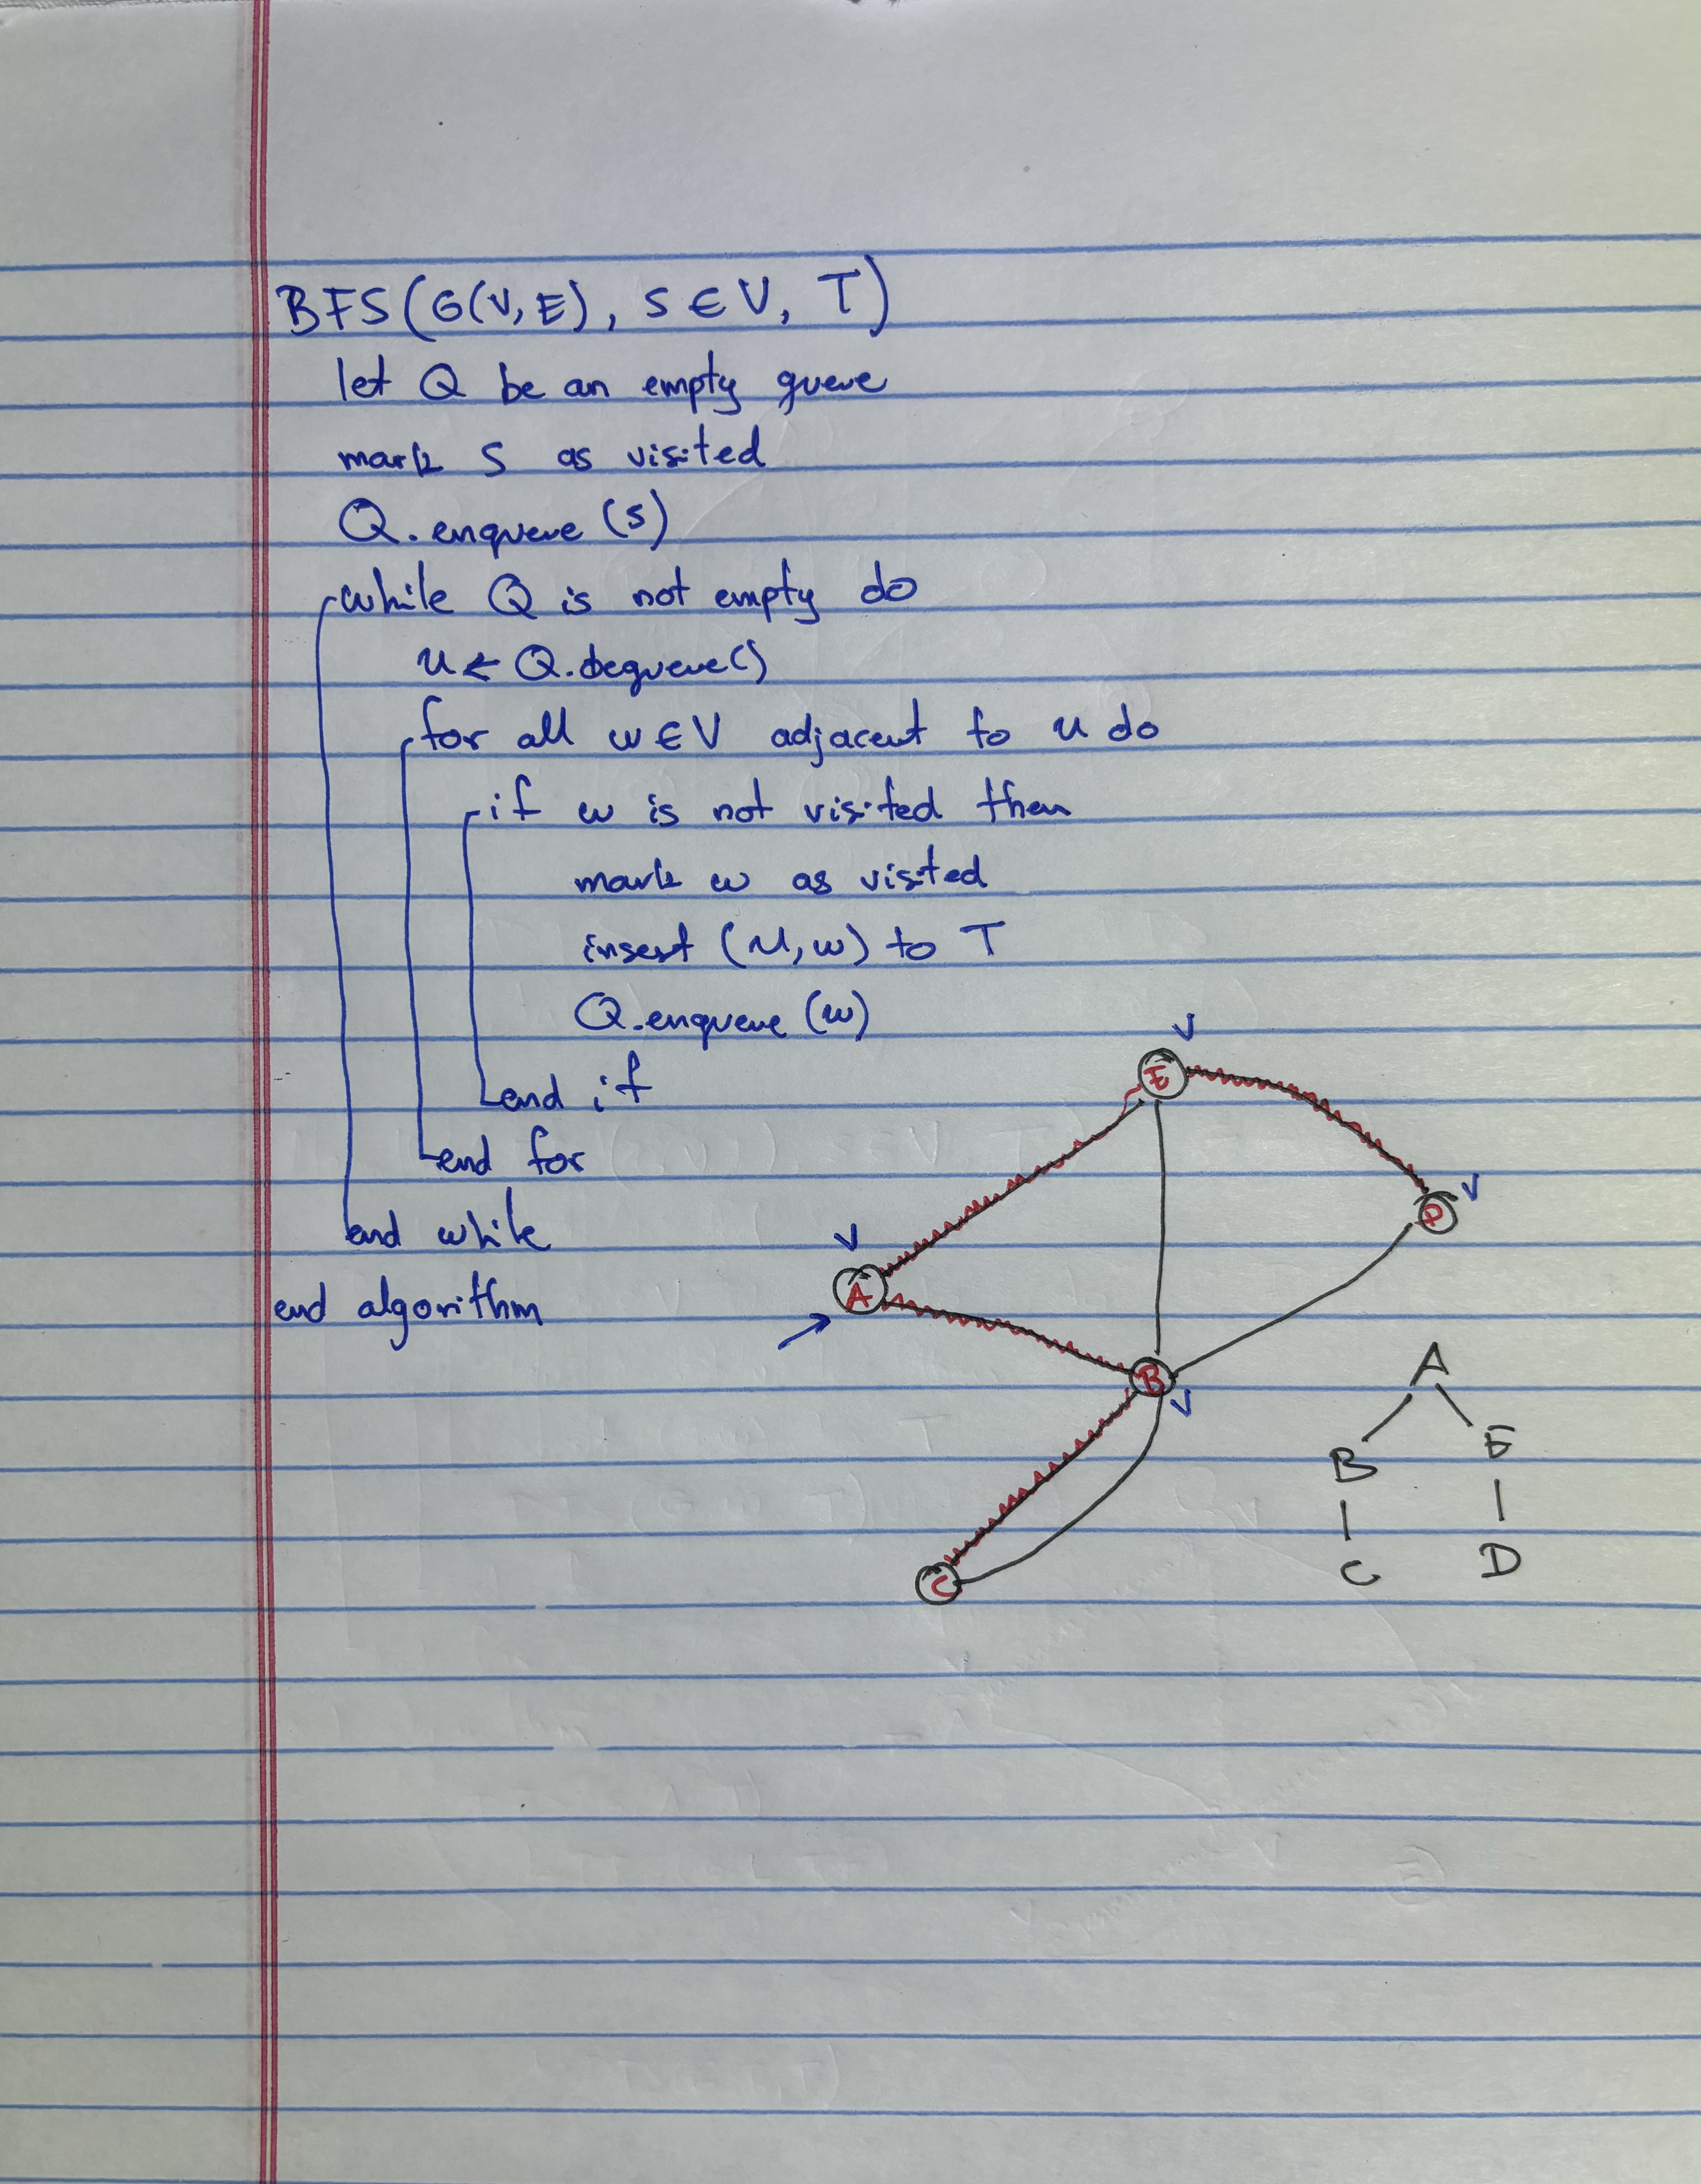 BFS(G(V,E), S∈V, T)
let Q be an empty queue
mark S as visited
Q.enqueue(s)
while Q is not empty do
u ← Q.dequeue()
for all w∈V adjacent to u do
if w is not visited then
mark w as visited
insert (u,w) to T
Q.enqueue(w)
end if
end for
end while
end algorithm
V
E
V
D
V
A
B
V
C
A
B E
C D